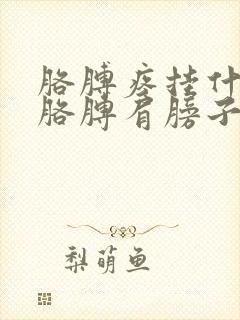 胳膊疼挂什
胳膊肩膀子
梨萌鱼